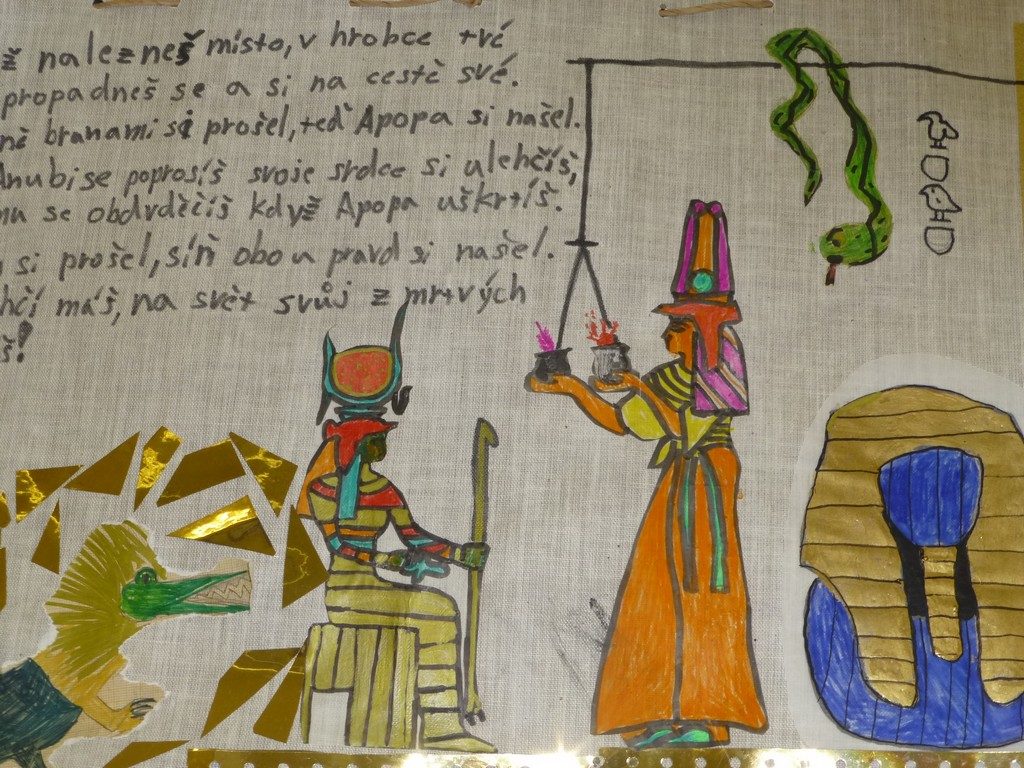 ž nalezneš místo, v hrobce tvé
propadneš se a si na cestě své.
branami si prošel, teď Apopa si našel.
Anubise poprosíš svoje srdce si ulehčíš,
mu se obdvděčíš když Apopa uškrtíš.
si prošel, síň obou pravd si našel.
hčí máš, na svět svůj z mrtvých
š!